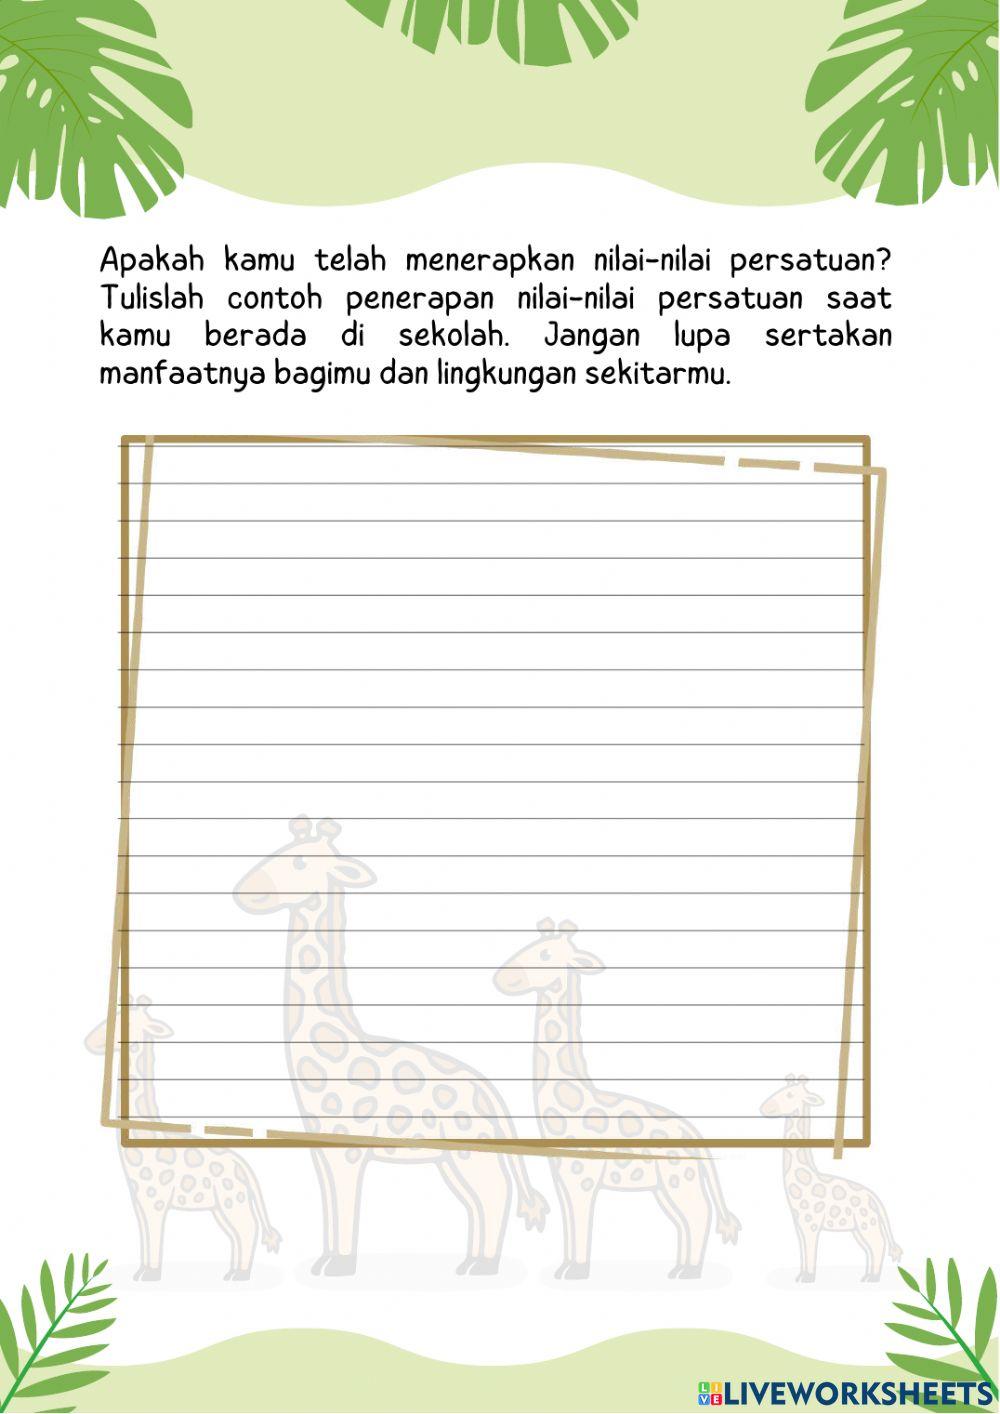 Apakah kamu telah menerapkan nilai-nilai persatuan?
Tulislah contoh penerapan nilai-nilai persatuan saat
kamu berada di sekolah. Jangan lupa sertakan
manfaatnya bagimu dan lingkungan sekitarmu.
LIVE LIVEWORKSHEETS